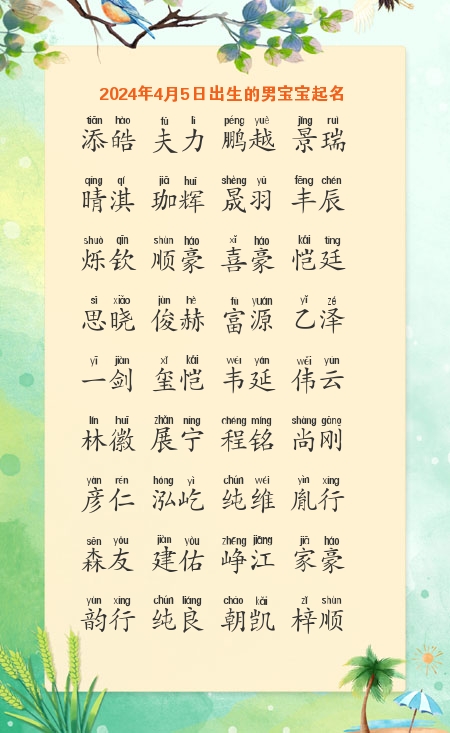 2024年4月5日出生的男宝宝起名
tiān hào fū lì péng yuè jǐng ruì
添皓 夫力 鹏越 景瑞
qíng qí jiā huī shèng yǔ fēng chén
晴淇 珈辉 晟羽 丰辰
shuò qīn shùn háo xǐ háo kǎi tíng
烁钦 顺豪 喜豪 恺廷
sī xiǎo jùn hè fù yuán yǐ zé
思晓 俊赫 富源 乙泽
yī jiàn xǐ kǎi wéi yán wěi yún
一剑 玺恺 韦延 伟云
lín huī zhǎn níng chéng míng shàng gāng
林徽 展宁 程铭 尚刚
yàn rén hóng yì chún wéi yìn xíng
彦仁 泓屹 纯维 胤行
sēn yǒu jiàn yòu zhēng jiāng jiā háo
森友 建佑 峥江 家豪
yùn xíng chún liáng cháo kǎi zǐ shùn
韵行 纯良 朝凯 梓顺